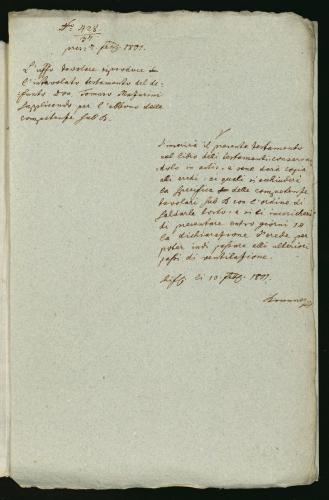 N: 428
57
pres: 2. Febb. 1801.
L'uffo tavolare riproduce
l'intavolato testamento del de-
funto Don Tomaso
supplicando per l'abbono delle
competenze sub B.
V
S'inscrivi il presente testamento
nel libro delli testamenti conservan-
dolo in actis, e sene darà copia
alli eredi, ai quali si acchiuderà
la specifica delle competenze
tavolari sub B con l'ordine di
saldarle tosto, e si
di presentare entro giorni 14
la dichiarazione d'erede per
poter indi passare alli ulteriori
passi di ventilazione.
li 10 Febb. 1801.